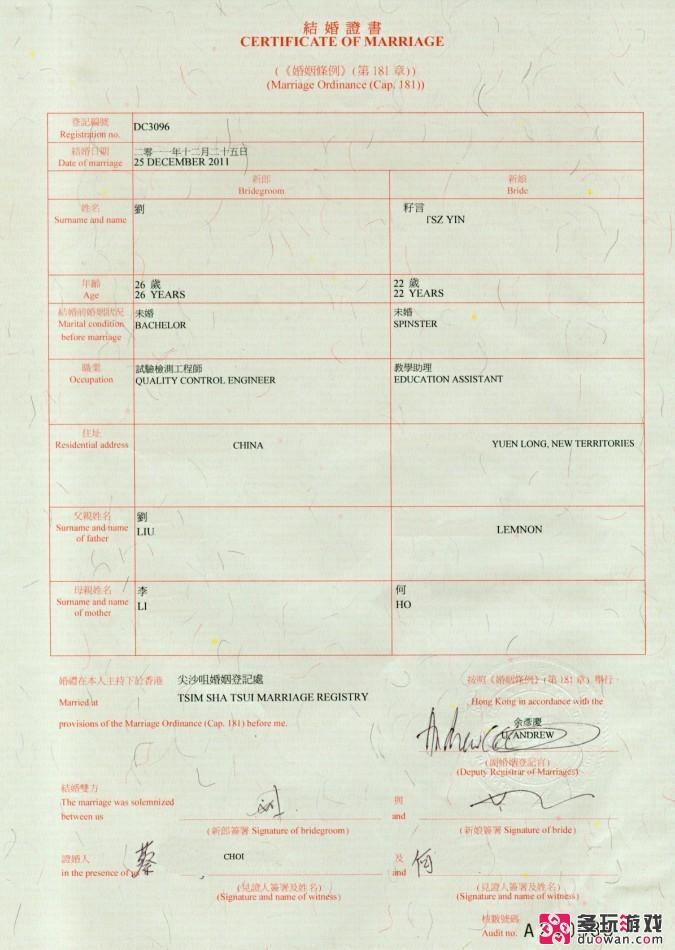 結婚證書
CERTIFICATE OF MARRIAGE
(《婚姻條例》(第181章))
(Marriage Ordinance (Cap. 181))
登記編號
Registration no.
DC3096
結婚日期
Date of marriage
二零一一年十二月二十五日
25 DECEMBER 2011
新郎
Bridegroom
新娘
Bride
姓名
Surname and name
劉
籽言
TSZ YIN
年齡
Age
26 歲
26 YEARS
22 歲
22 YEARS
結婚前婚姻狀況
Marital condition
before marriage
未婚
BACHELOR
未婚
SPINSTER
職業
Occupation
試驗檢測工程師
QUALITY CONTROL ENGINEER
教學助理
EDUCATION ASSISTANT
住址
Residential address
CHINA
YUEN LONG, NEW TERRITORIES
父親姓名
Surname and name
of father
劉
LIU
LEMNON
母親姓名
Surname and name
of mother
李
LI
何
HO
婚禮在本人主持下於香港 尖沙咀婚姻登記處 按照《婚姻條例》(第181章)舉行。
Married at TSIM SHA TSUI MARRIAGE REGISTRY , Hong Kong in accordance with the
provisions of the Marriage Ordinance (Cap. 181) before me.
Andrew
ANDREW
(副婚姻登記官)
(Deputy Registrar of Marriages)
結婚雙方
The marriage was solemnized
between us
劉
(新郎簽署 Signature of bridegroom)
與
and
(新娘簽署 Signature of bride)
證婚人
in the presence of
蔡
CHOI
(見證人簽署及姓名)
(Signature and name of witness)
及
and
何
(見證人簽署及姓名)
(Signature and name of witness)
核數號碼
Audit no. A
多玩游戏
duowan.com